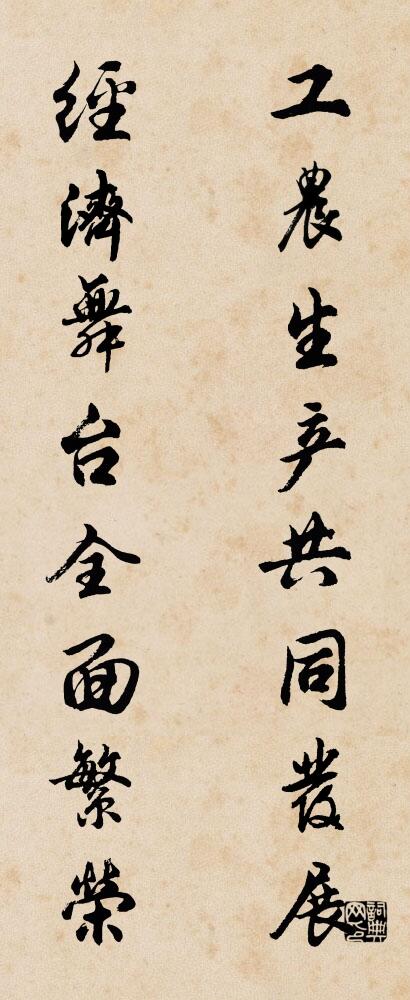 工農生产共同發展
經濟舞台全面繁榮